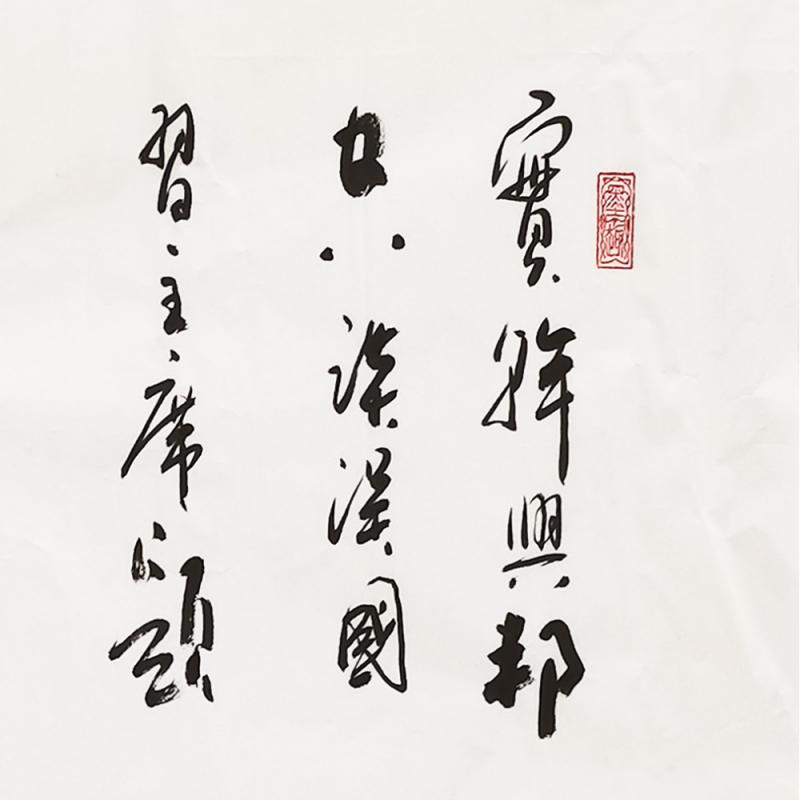 實幹興邦
空談誤國
習主席頌